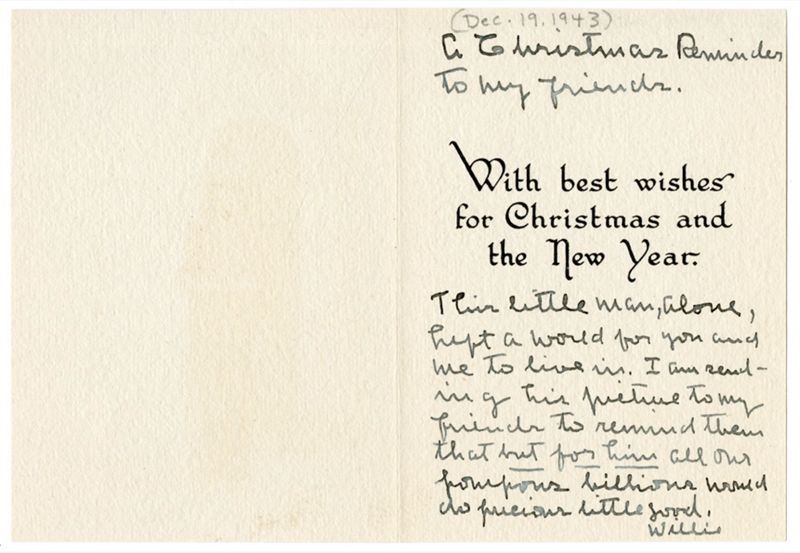 (Dec. 19. 1943)
A Christmas Reminder
to my friends.
With best wishes
for Christmas and
the New Year.
This little man, alone,
kept a world for you and
me to live in. I am send-
ing his picture to my
friends to remind them
that but for him all our
pompous billions would
do precious little good.
Willis